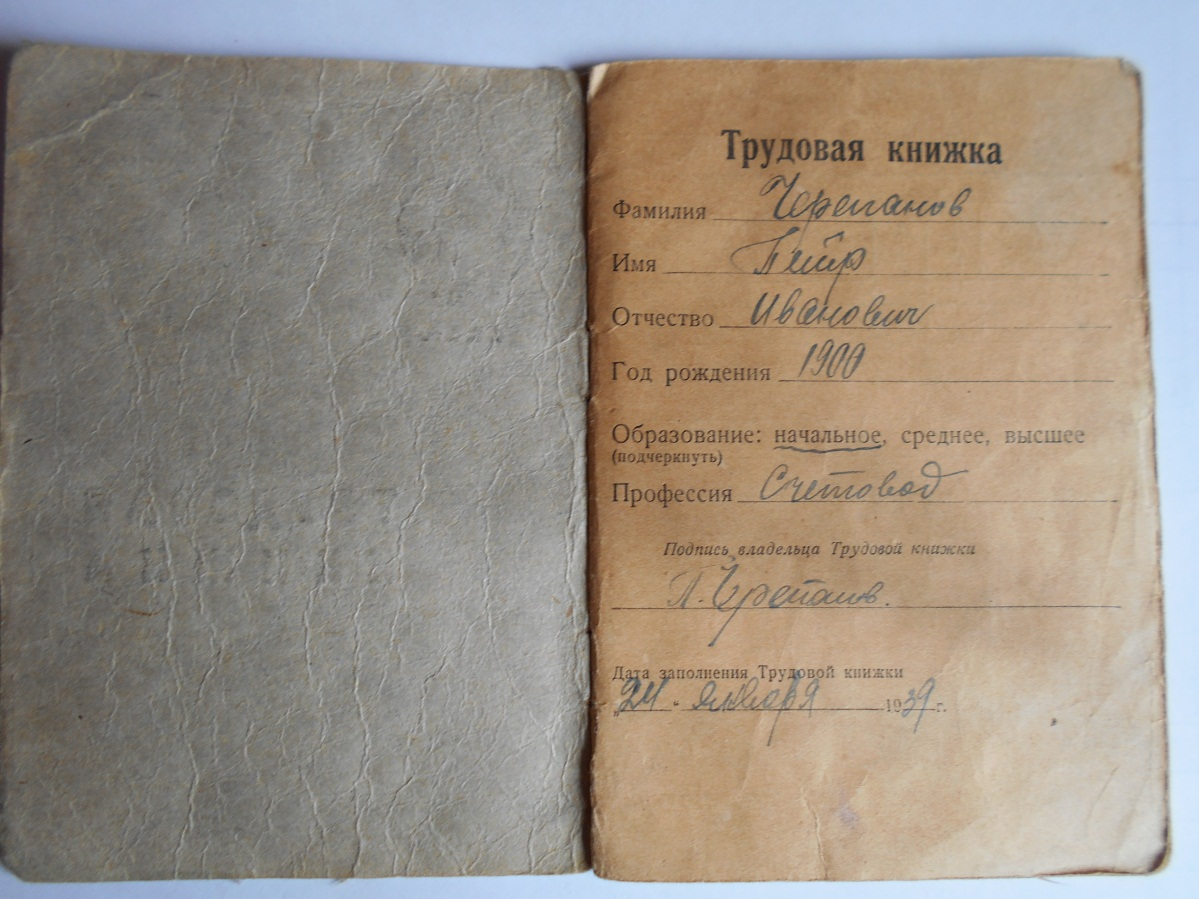 Трудовая книжка
Фамилия Черепанов
Имя Петр
Отчество Иванович
Год рождения 1900
Образование: начальное, среднее, высшее
(подчеркнуть)
Профессия Счетовод
Подпись владельца Трудовой книжки
П. Черепанов.
Дата заполнения Трудовой книжки
„24 " января 1939 г.